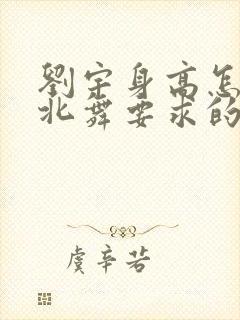 劉宗身高怎
北舞要求的
虞辛若